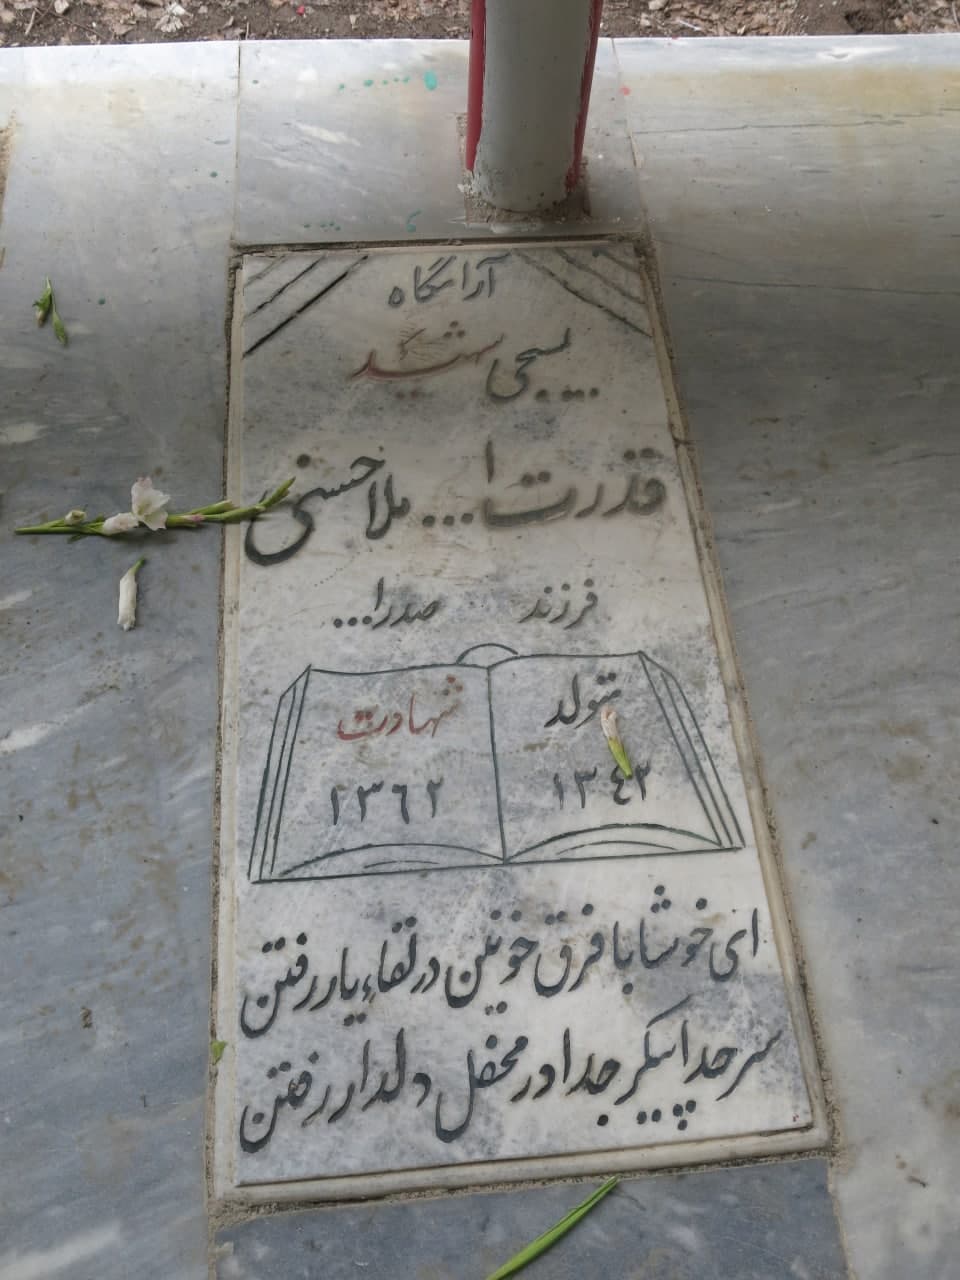 آرامگاه
بسیجی شهید
قدرت ا... ملاحسنی
فرزند صدرا...
تولد شهادت
۱۳٤۲ ۱۳٦۲
ای خوشا با فرق خونین در لقاء یار رفتن
سر جدا پیکر جدا در محفل دلدار رفتن